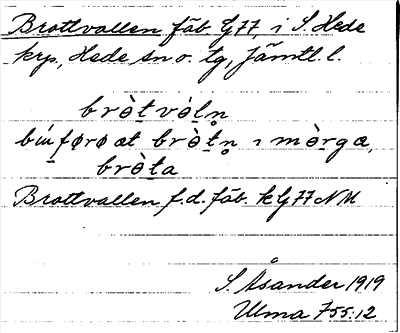 Brottvallen fäb. G77, i S. Hede
krp, Hede sn o. tg, Jämtl. l.
bròtvòln̥
bíuførø at bròtn̥ ı mòrga,
bròta
Brottvallen f.d. fäb. k G77 NM
S. Åsander 1919
Ulma 755:12